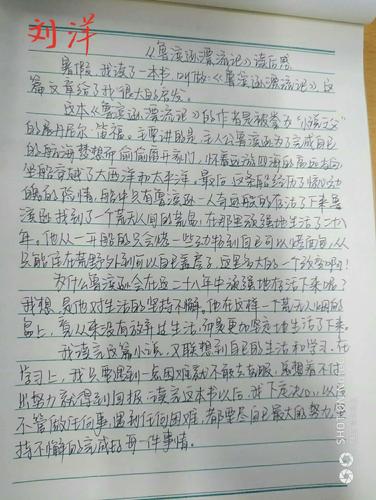 刘洋
《鲁滨逊漂流记》读后感
暑假,我读了一本书,叫做《鲁滨逊漂流记》,这
篇文章给了我很大的启发。
这本《鲁滨逊漂流记》的作者是被誉为“小说之父”
的展丹尼尔·笛福。主要讲的是主人公鲁滨逊为了完成自己
的航海梦想而偷偷离开家门,怀着远游四海的高远志向,
坐船穿越了大西洋和太平洋。最后这条船经历了惊心动
魄的险情,船中只有鲁滨逊一人奇迹般的存活了下来。鲁
滨逊找到了一个荒无人烟的荒岛,在那里顽强地生活了二十八
年。他从一开始的只会做一些 到自己可以烤面包,从
只能住在荒野外到可以自己盖房子,这是多大的一个改变啊!
为什么鲁滨逊会在这二十八年中顽强地存活下来呢?
我想,是他对生活的坚持不懈。他在这样一个荒无人烟的
岛上,着从来没有放弃过生活,而是更加坚定地生活了下来。
我读完这篇小说,又联想到自己的生活和学习。在
学习上,我只要遇到一点困难就不敢去克服,总想着不付
出努力就得到回报。读完这本书以后,我下定决心,以后
不管做任何事,遇到任何困难,都要尽自己最大的努力,坚
持不懈的完成好每一件事情。
SHOT ON